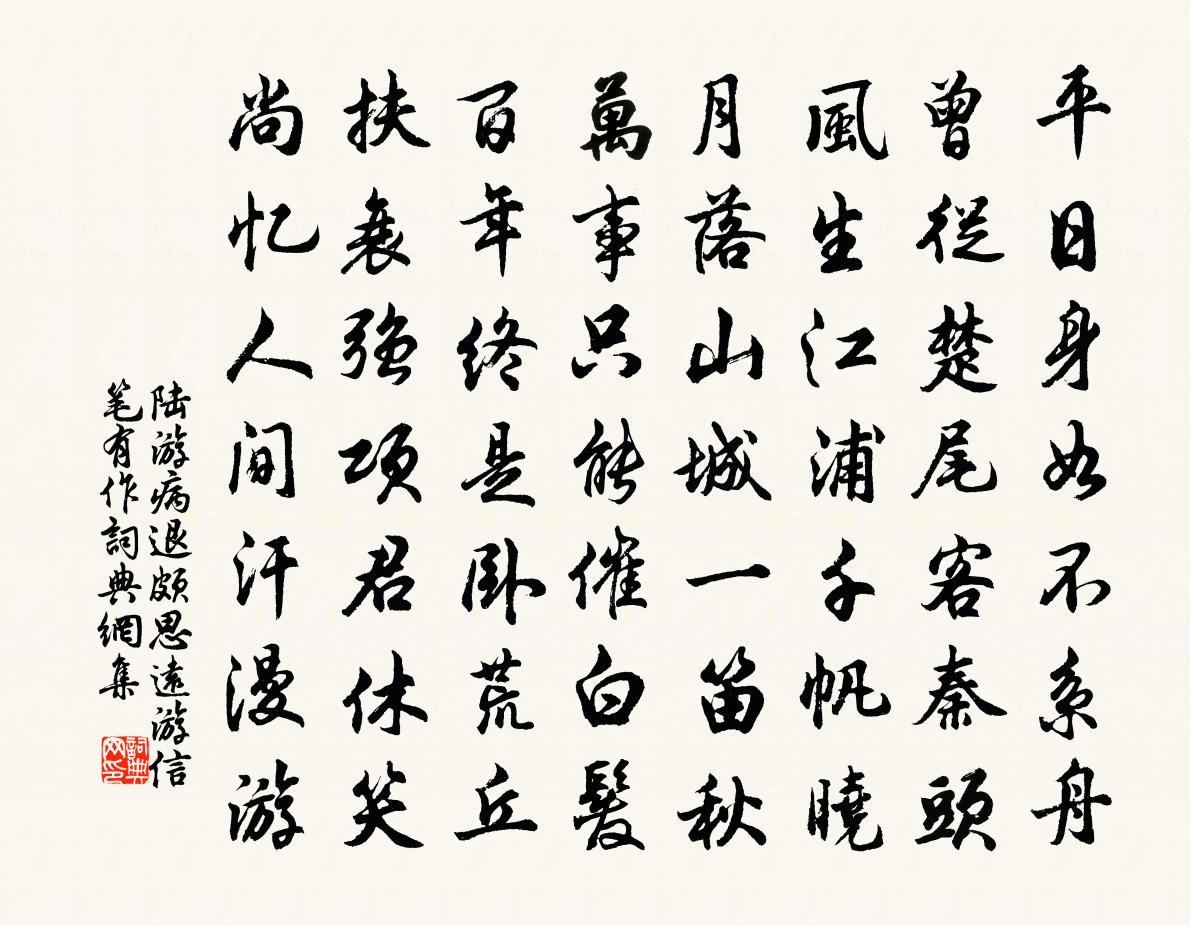 平日身如不系舟
曾從楚尾客秦頭
風生江浦千帆曉
月落山城一笛秋
萬事只能催白髮
百年終是臥荒丘
扶衰強項君休笑
尚忆人间汗漫游
陆游病退颇思遠游信
笔有作詞典網集
詞典
网印